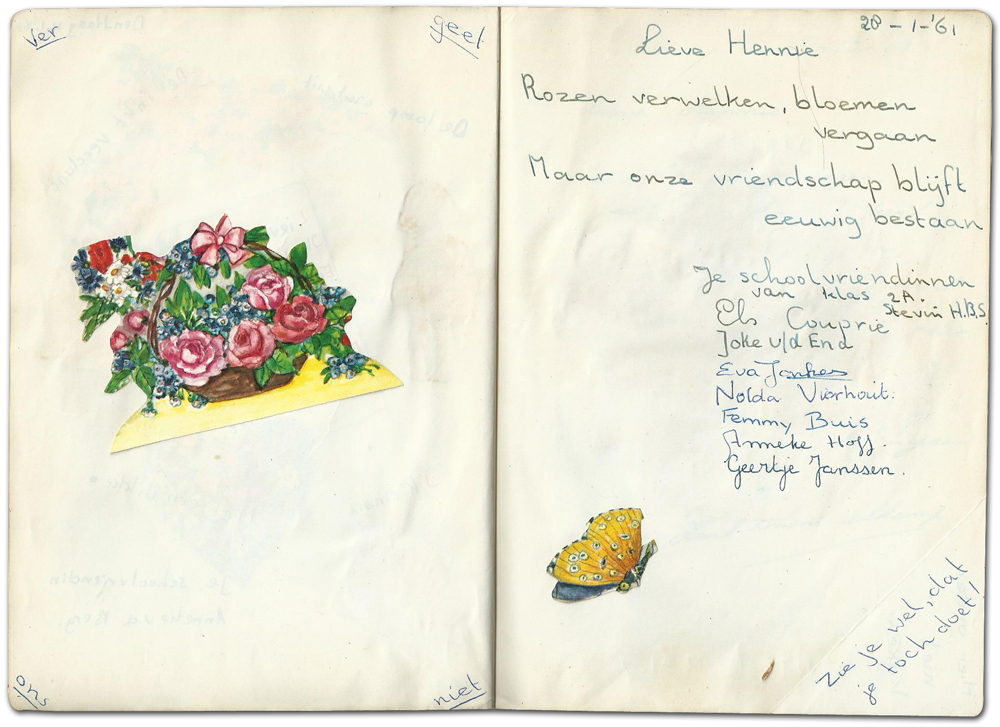 ver
geet
ons
niet
28-1-'61
Lieve Hennie
Rozen verwelken, bloemen
vergaan
Maar onze vriendschap blijft
eeuwig bestaan
Je schoolvriendinnen
van klas 2A.
Stevin H.B.S.
Els Couprie
Joke v/d End
Eva Jankes
Nolda Vierhout.
Femmy Buis
Anneke Hoff.
Geertje Janssen.
Zie je wel, dat
je toch doet!